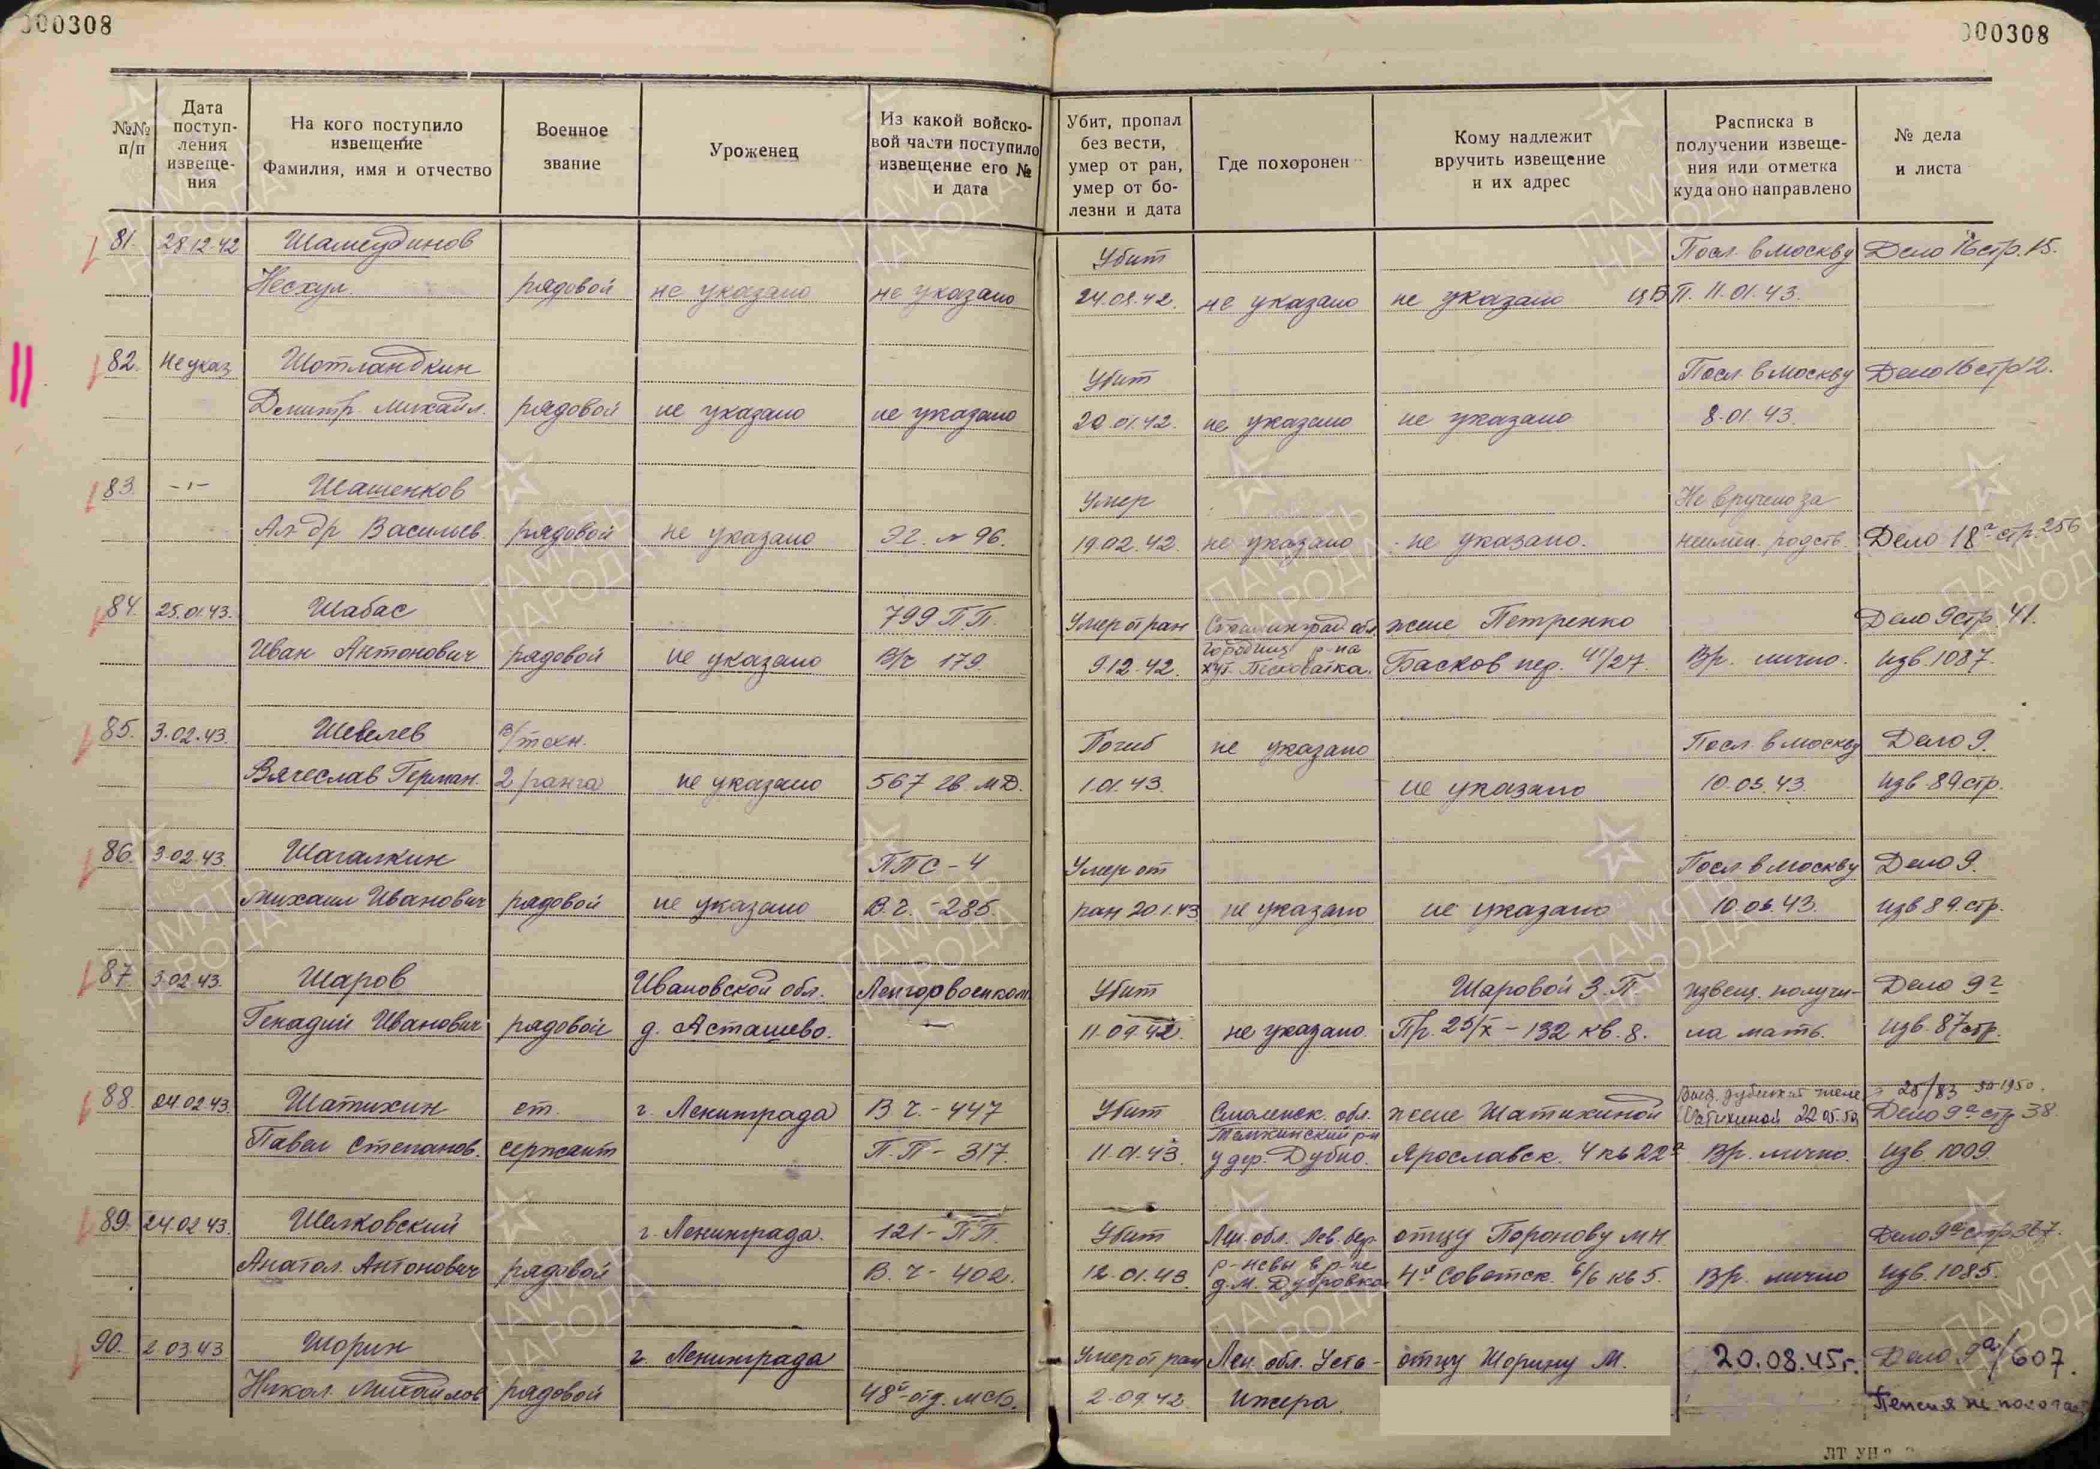 000308
000308
№№ п/п
Дата поступ-
ления
извеще-
ния
На кого поступило
извещение
Фамилия, имя и отчество
Военное
звание
Уроженец
Из какой войско-
вой части поступило
извещение его №
и дата
Убит, пропал
без вести,
умер от ран,
умер от бо-
лезни и дата
Где похоронен
Кому надлежит
вручить извещение
и их адрес
Расписка в
получении извеще-
ния или отметка
куда оно направлено
№ дела
и листа
81. 28.12.42 Шамсудинов Убит Посл. в Москву Дело 16 стр. 15.
Несхул. рядовой не указано не указано 24.08.42. не указано не указано ЦБП. 11.01.43.
82. Не указ Шотландкин Убит Посл. в Москву Дело 16 стр 12.
Дмитр. Михайл. рядовой не указано не указано 20.01.42. не указано не указано 8.01.43.
83. -"- Шашенков Умер Не вручено за
Ал-др Васильев. рядовой не указано Эг. № 96. 19.02.42. не указано не указано. неимен. родств. Дело 18а стр. 256
84. 25.01.43. Шабас 799 П.П. Умер от ран Сталинград. обл. жене Петренко Дело 9 стр. 41.
Иван Антонович рядовой не указано В/ч 179 9.12.42. Городищ. р-на хут. Песковатка. Басков пер. 41/27. Вр. лично. Изв. 1087.
85. 3.02.43. Шевелев в/техн. Погиб не указано Посл. в Москву Дело 9.
Вячеслав Герман. 2 ранга не указано 567 гв. МД. 1.01.43. не указано 10.03.43. Изв. 89 стр.
86. 3.02.43. Шагалкин ППС-4 Умер от Посл. в Москву Дело 9.
Михаил Иванович рядовой не указано В.ч. - 285. ран 20.1.43 не указано не указано 10.03.43. Изв 89 стр.
87. 3.02.43. Шаров Ивановской обл. Ленгорвоенком. Убит Шаровой З.П извещ. получи- Дело 9г
Генадий Иванович рядовой д. Асташево. 11.09.42. не указано. Пр. 25/X - 132 кв. 8. ла мать. Изв. 87 стр.
88. 24.02.43. Шатихин ст. г. Ленинграда В ч. - 447 Убит Смоленск. обл. жене Шатихиной Выд. дубликат жене Шатихиной 22.05.50 25/83 1950. Дело 9а стр 38.
Павел Степанов. сержант П.П - 317. 11.01.43. Темкинский р-н у дер. Дубно. Ярославск. 4 кв 22а Вр. лично. Изв. 1009.
89. 24.02.43. Шелковский г. Ленинграда. 121 - П.П. Убит Лен. обл. Лев. бер. отцу Поронову М.Н. Дело 9а стр 367.
Анатол. Антонович рядовой В.ч - 402. 12.01.43. р-Невы в р-не д. М. Дубровка 4я Советск. 6/6 кв 5. Вр. лично Изв. 1085.
90. 2.03.43 Шорин г. Ленинграда Умер от ран Лен. обл. Усть- отцу Шорину М. 20.08.45г. Дело 9а/607.
Никол. Михайлов рядовой 48й отд. МСБ. 2.09.42. Ижора. Пенсия не полагает
ПАМЯТЬ
НАРОДА